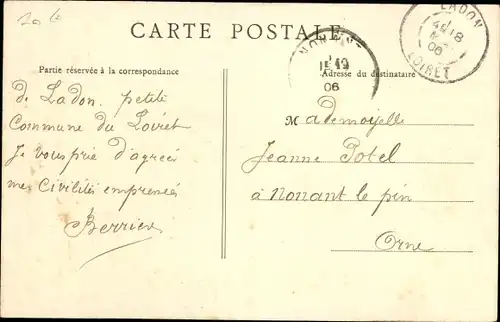 CARTE POSTALE
Partie réservée à la correspondance
Adresse du destinataire
LADON
LOIRET
06
06
De Ladon. petite
Commune du Loiret
Je vous prie d'agréer
mes Civilités empressées
Berrier
Mademoiselle
Jeanne Potel
à Nonant le pin
Orne